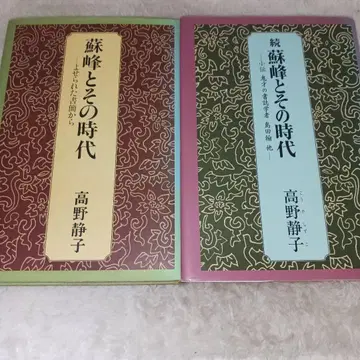 蘇峰とその時代
―よせられた書簡から
高野静子
続 蘇峰とその時代
―小伝 鬼才の書誌学者 島田翰 他―
高野静子